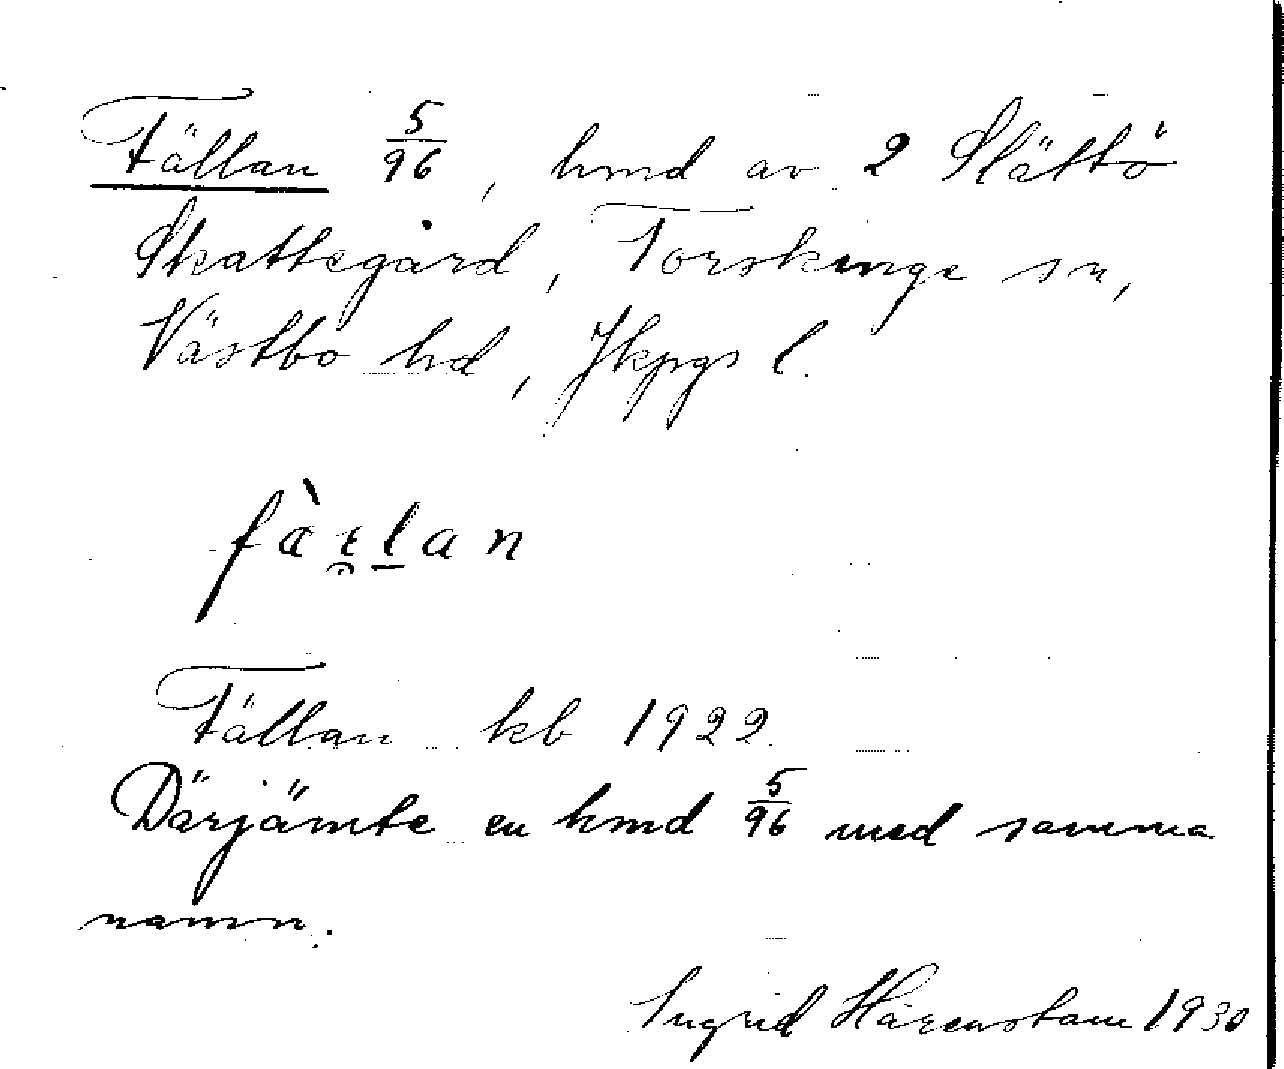 Fällan 5/96, hmd av 2 Slättö
Skattegård, Torskinge sn,
Västbo hd, Jkpgs l.
Fällan kb 1922.
Därjämte en hmd 5/96 med samma
namn.
Ingrid Härenstam 1930